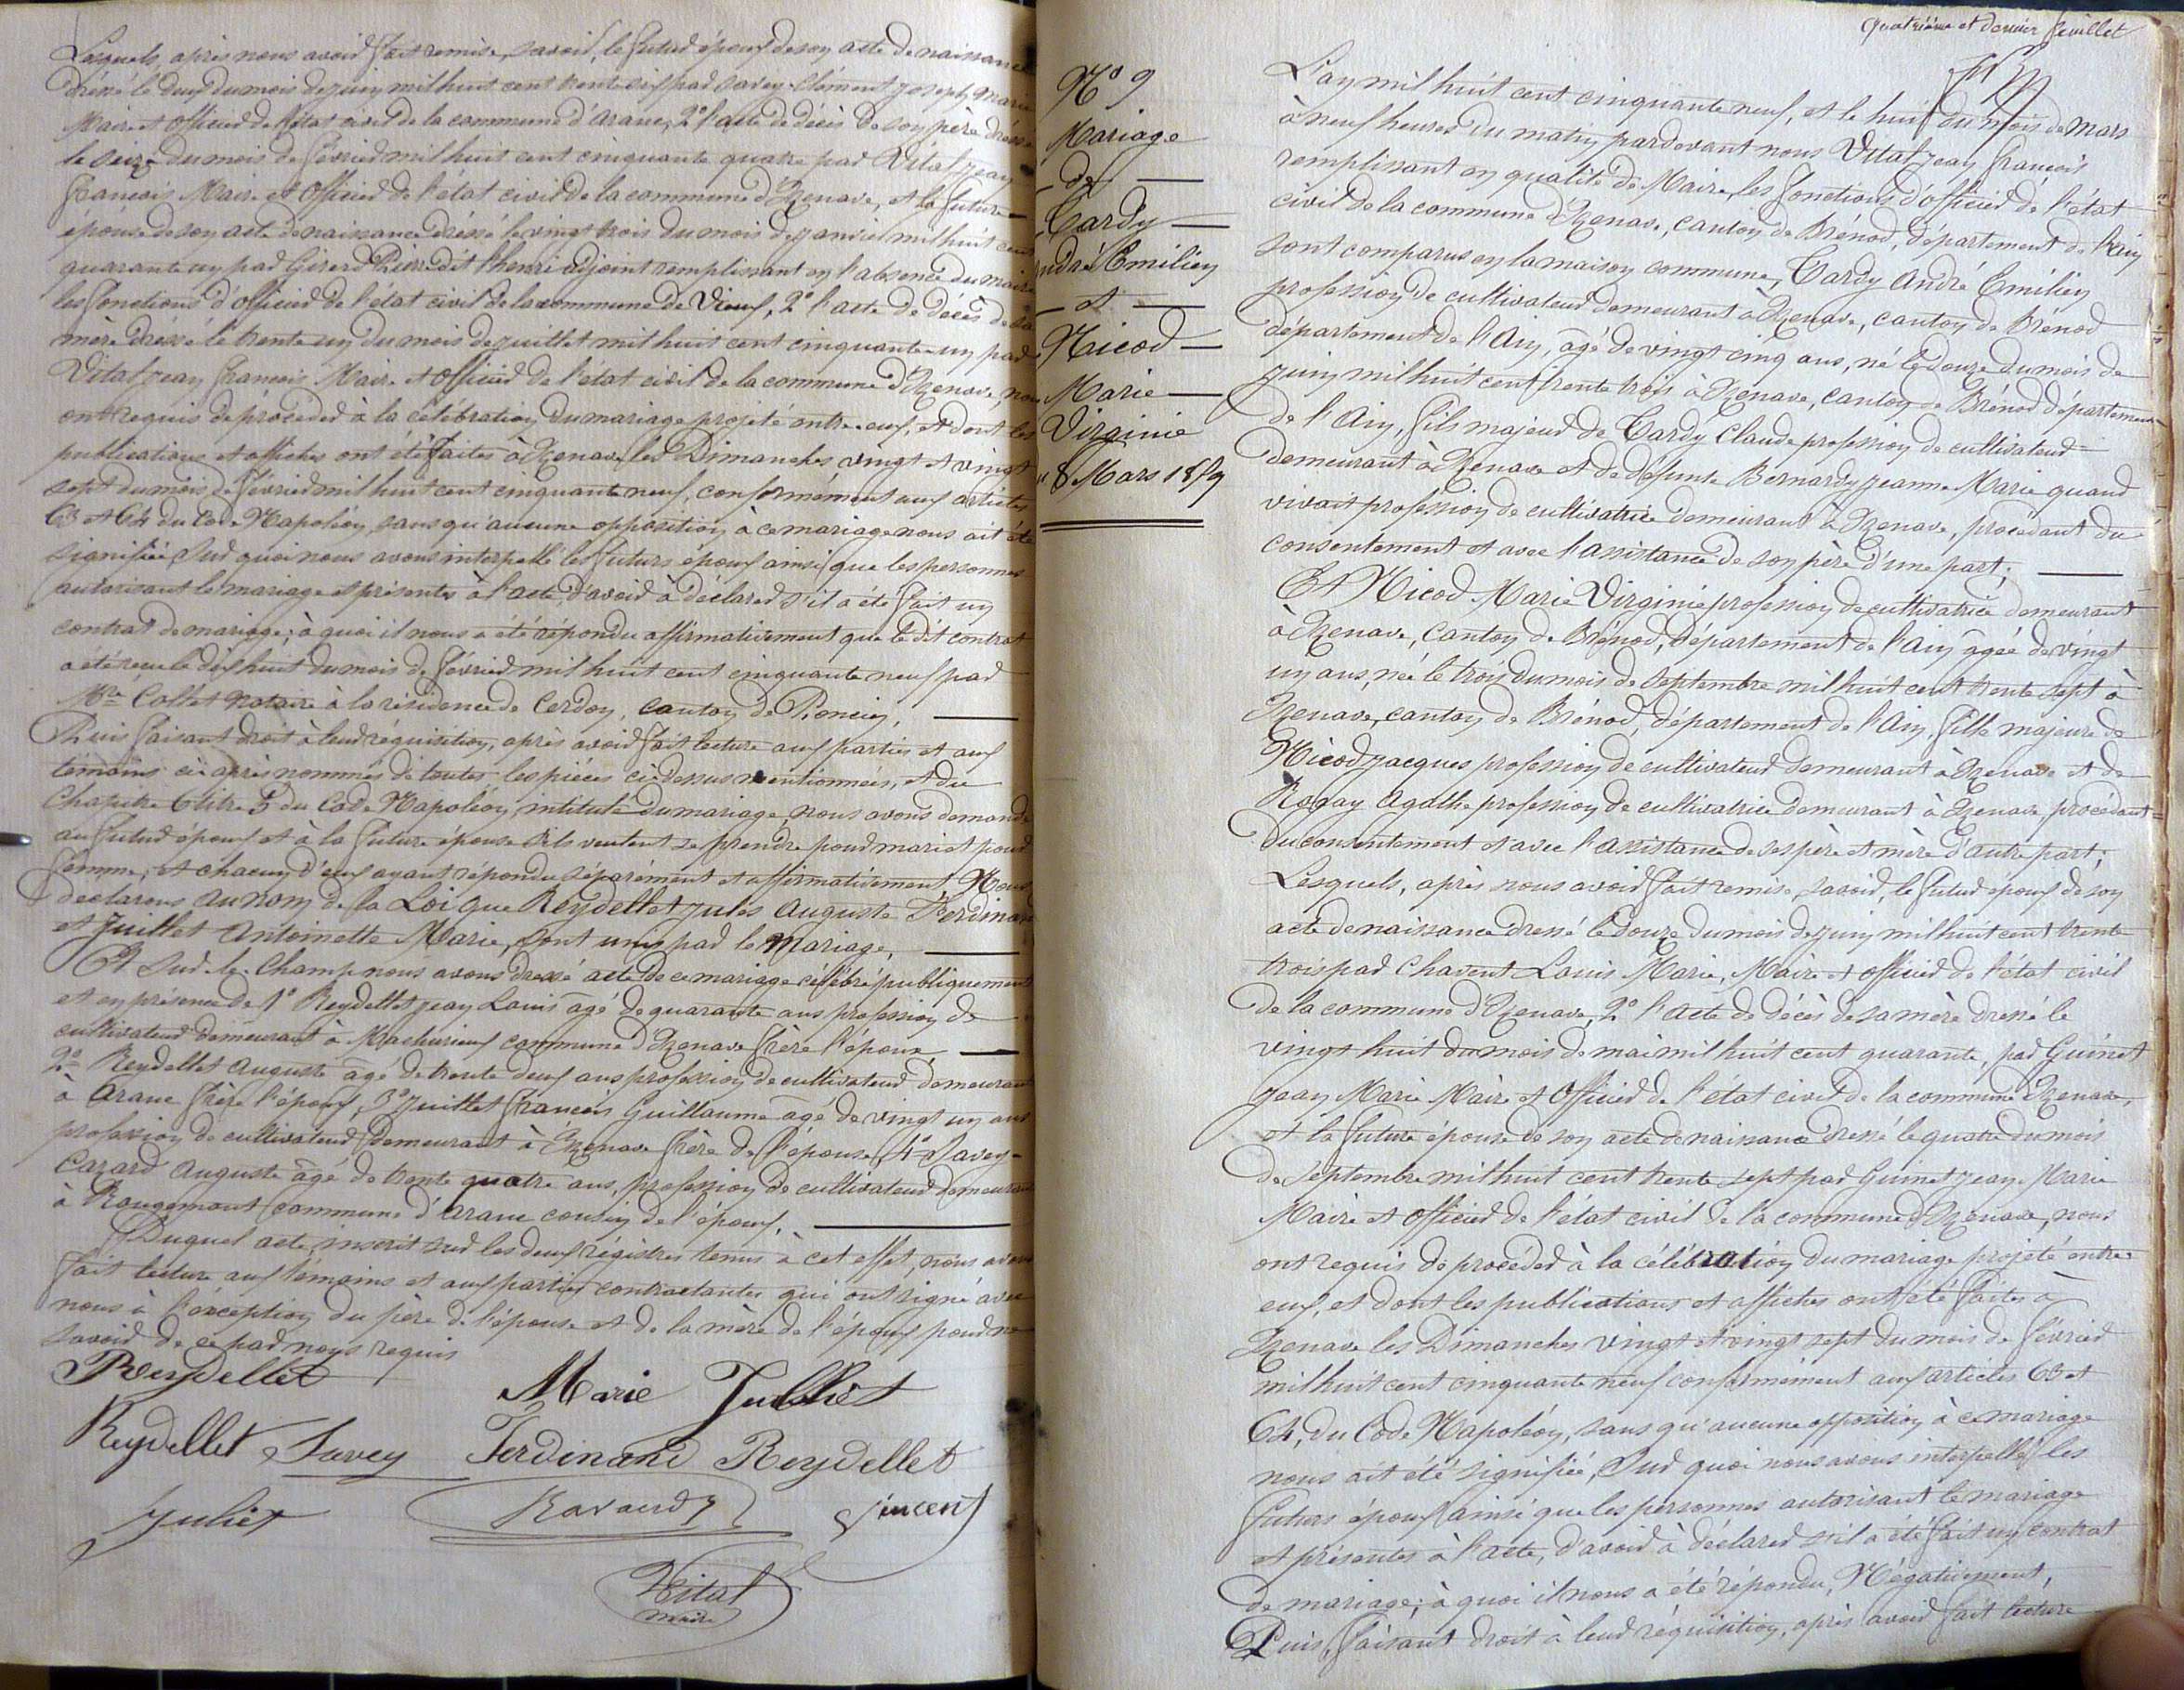 Lesquels, après nous avoir fait remise, savoir, le futur époux de son acte de naissance
dréssé le deux du mois de juin mil huit cent trente six par Savey Clément Joseph Marie
Maire et officier de l'état civil de la commune d'Arane, 2° l'acte de décès de son père dréssé
le seize du mois de février mil huit cent cinquante quatre par Vital Jean
François Maire et officier de l'état civil de la commune d'Izenave, et la future
épouse de son acte de naissance dréssé le vingt trois du mois de janvier mil huit cent
quarante un par Girerd Pierre dit l'henri adjoint remplissant en l'absence du maire
les fonctions d'officier de l'état civil de la commune de Vieux, 2° l'acte de décès de sa
mère dréssé le trente un du mois de juillet mil huit cent cinquante un par
Vital Jean François Maire et officier de l'état civil de la commune d'Izenave, nous
ont requis de procéder à la célébration du mariage projeté entre eux, et dont les
publications et affiches ont été faites à Izenave les Dimanches vingt et vingt
sept du mois de février mil huit cent cinquante neuf, conformément aux articles
63 et 64 du Code Napoléon, sans qu'aucune opposition à ce mariage nous ait été
signifiée, Sur quoi nous avons interpellé les futurs époux ainsi que les personnes
autorisant le mariage et présentes à l'acte, d'avoir à déclarer s'il a été fait un
contrat de mariage; à quoi il nous a été répondu affirmativement que le dit contrat
a été reçu le dix huit du mois de février mil huit cent cinquante neuf par
Mre Collet notaire à la résidence de Cerdon, canton de Poncin,
Puis faisant droit à leur réquisition, après avoir fait lecture aux parties et aux
témoins ci-après nommés de toutes les pièces ci-dessus mentionnées, et du
Chapitre 6 titre 5 du Code Napoléon, intitulé du mariage, nous avons demandé
au futur époux et à la future épouse s'ils veulent se prendre pour mari et pour
femme, et chacun d'eux ayant répondu séparément et affirmativement, Nous
déclarons au nom de la Loi que Reydellet Jules Auguste Ferdinand
et Juillet Antoinette Marie, sont unis par le mariage,
Et Sur-le-Champ nous avons dressé acte de ce mariage célébré publiquement
et en présence de 1° Reydellet Jean Louis âgé de quarante ans profession de
cultivateur demeurant à Machurieux commune d'Izenave frère l'époux,
2° Reydellet Auguste âgé de trente deux ans profession de cultivateur demeurant
à Arane frère l'époux, 3° Juillet François Guillaume âgé de vingt un ans
profession de cultivateur demeurant à Izenave frère de l'épouse, 4° Savey-
Cazard Auguste âgé de trente quatre ans, profession de cultivateur demeurant
à Rougemont commune d'Arane cousin de l'époux.
Duquel acte, inscrit sur les deux régistres tenus à cet effet, nous avons
fait lecture aux témoins et aux parties contractantes qui ont signé avec
nous à l'exception du père de l'épouse et de la mère de l'époux pour ne
savoir de ce par nous requis
Reydellet
Marie Julliet
Reydellet Savey Ferdinand Reydellet
Juliet Ravaurdy Vincent
Vital
maire
quatrième et dernier feuillet
N° 9
Mariage
de
Tardy
André Emilien
et
Nicod
Marie
Virginie
8 Mars 1859
L'an mil huit cent cinquante neuf, et le huit du mois de Mars
à neuf heures du matin pardevant nous Vital Jean François
remplissant en qualité de Maire, les fonctions d'officier de l'état
civil de la commune d'Izenave, canton de Brénod, département de l'Ain
sont comparus en la maison commune, Tardy André Emilien
profession de cultivateur demeurant à Izenave, canton de Brénod
département de l'Ain, âgé de vingt cinq ans, né le douze du mois de
juin mil huit cent trente trois à Izenave, canton de Brénod département
de l'Ain, fils majeur de Tardy Claude profession de cultivateur
demeurant à Izenave et de défunte Bernardy Jeanne Marie quand
vivait profession de cultivatrice demeurant à Izenave, procédant du
consentement et avec l'assistance de son père d'une part;
Et Nicod Marie Virginie profession de cultivatrice demeurant
à Izenave, canton de Brénod, département de l'Ain âgée de vingt
un ans, née le trois du mois de Septembre mil huit cent trente sept à
Izenave, canton de Brénod, département de l'Ain, fille majeure de
Nicod Jacques profession de cultivateur demeurant à Izenave et de
Ragay Agathe profession de cultivatrice demeurant à Izenave, procédant
du consentement et avec l'assistance de ses père et mère d'autre part;
Lesquels, après nous avoir fait remise, savoir, le futur époux de son
acte de naissance dressé le douze du mois de juin mil huit cent trente
trois par Chavent Louis Marie, Maire et officier de l'état civil
de la commune d'Izenave, 2° l'acte de décès de sa mère dressé le
vingt huit du mois de mai mil huit cent quarante, par Guinet
Jean Marie Maire et officier de l'état civil de la commune Izenave,
et la future épouse de son acte de naissance dressé le quatre du mois
de Septembre mil huit cent trente sept par Guinet Jean Marie
Maire et officier de l'état civil de la commune d'Izenave, nous
ont requis de procéder à la célébration du mariage projeté entre
eux, et dont les publications et affiches ont été faites à
Izenave les Dimanches vingt et vingt sept du mois de février
mil huit cent cinquante neuf conformément aux articles 63 et
64, du Code Napoléon, sans qu'aucune opposition à ce mariage
nous ait été signifiée, Sur quoi nous avons interpellé les
futurs époux ainsi que les personnes autorisant le mariage
et présentes à l'acte, d'avoir à déclarer s'il a été fait un contrat
de mariage; à quoi il nous a été répondu, Négativement,
Puis, faisant droit à leur réquisition, après avoir fait lecture